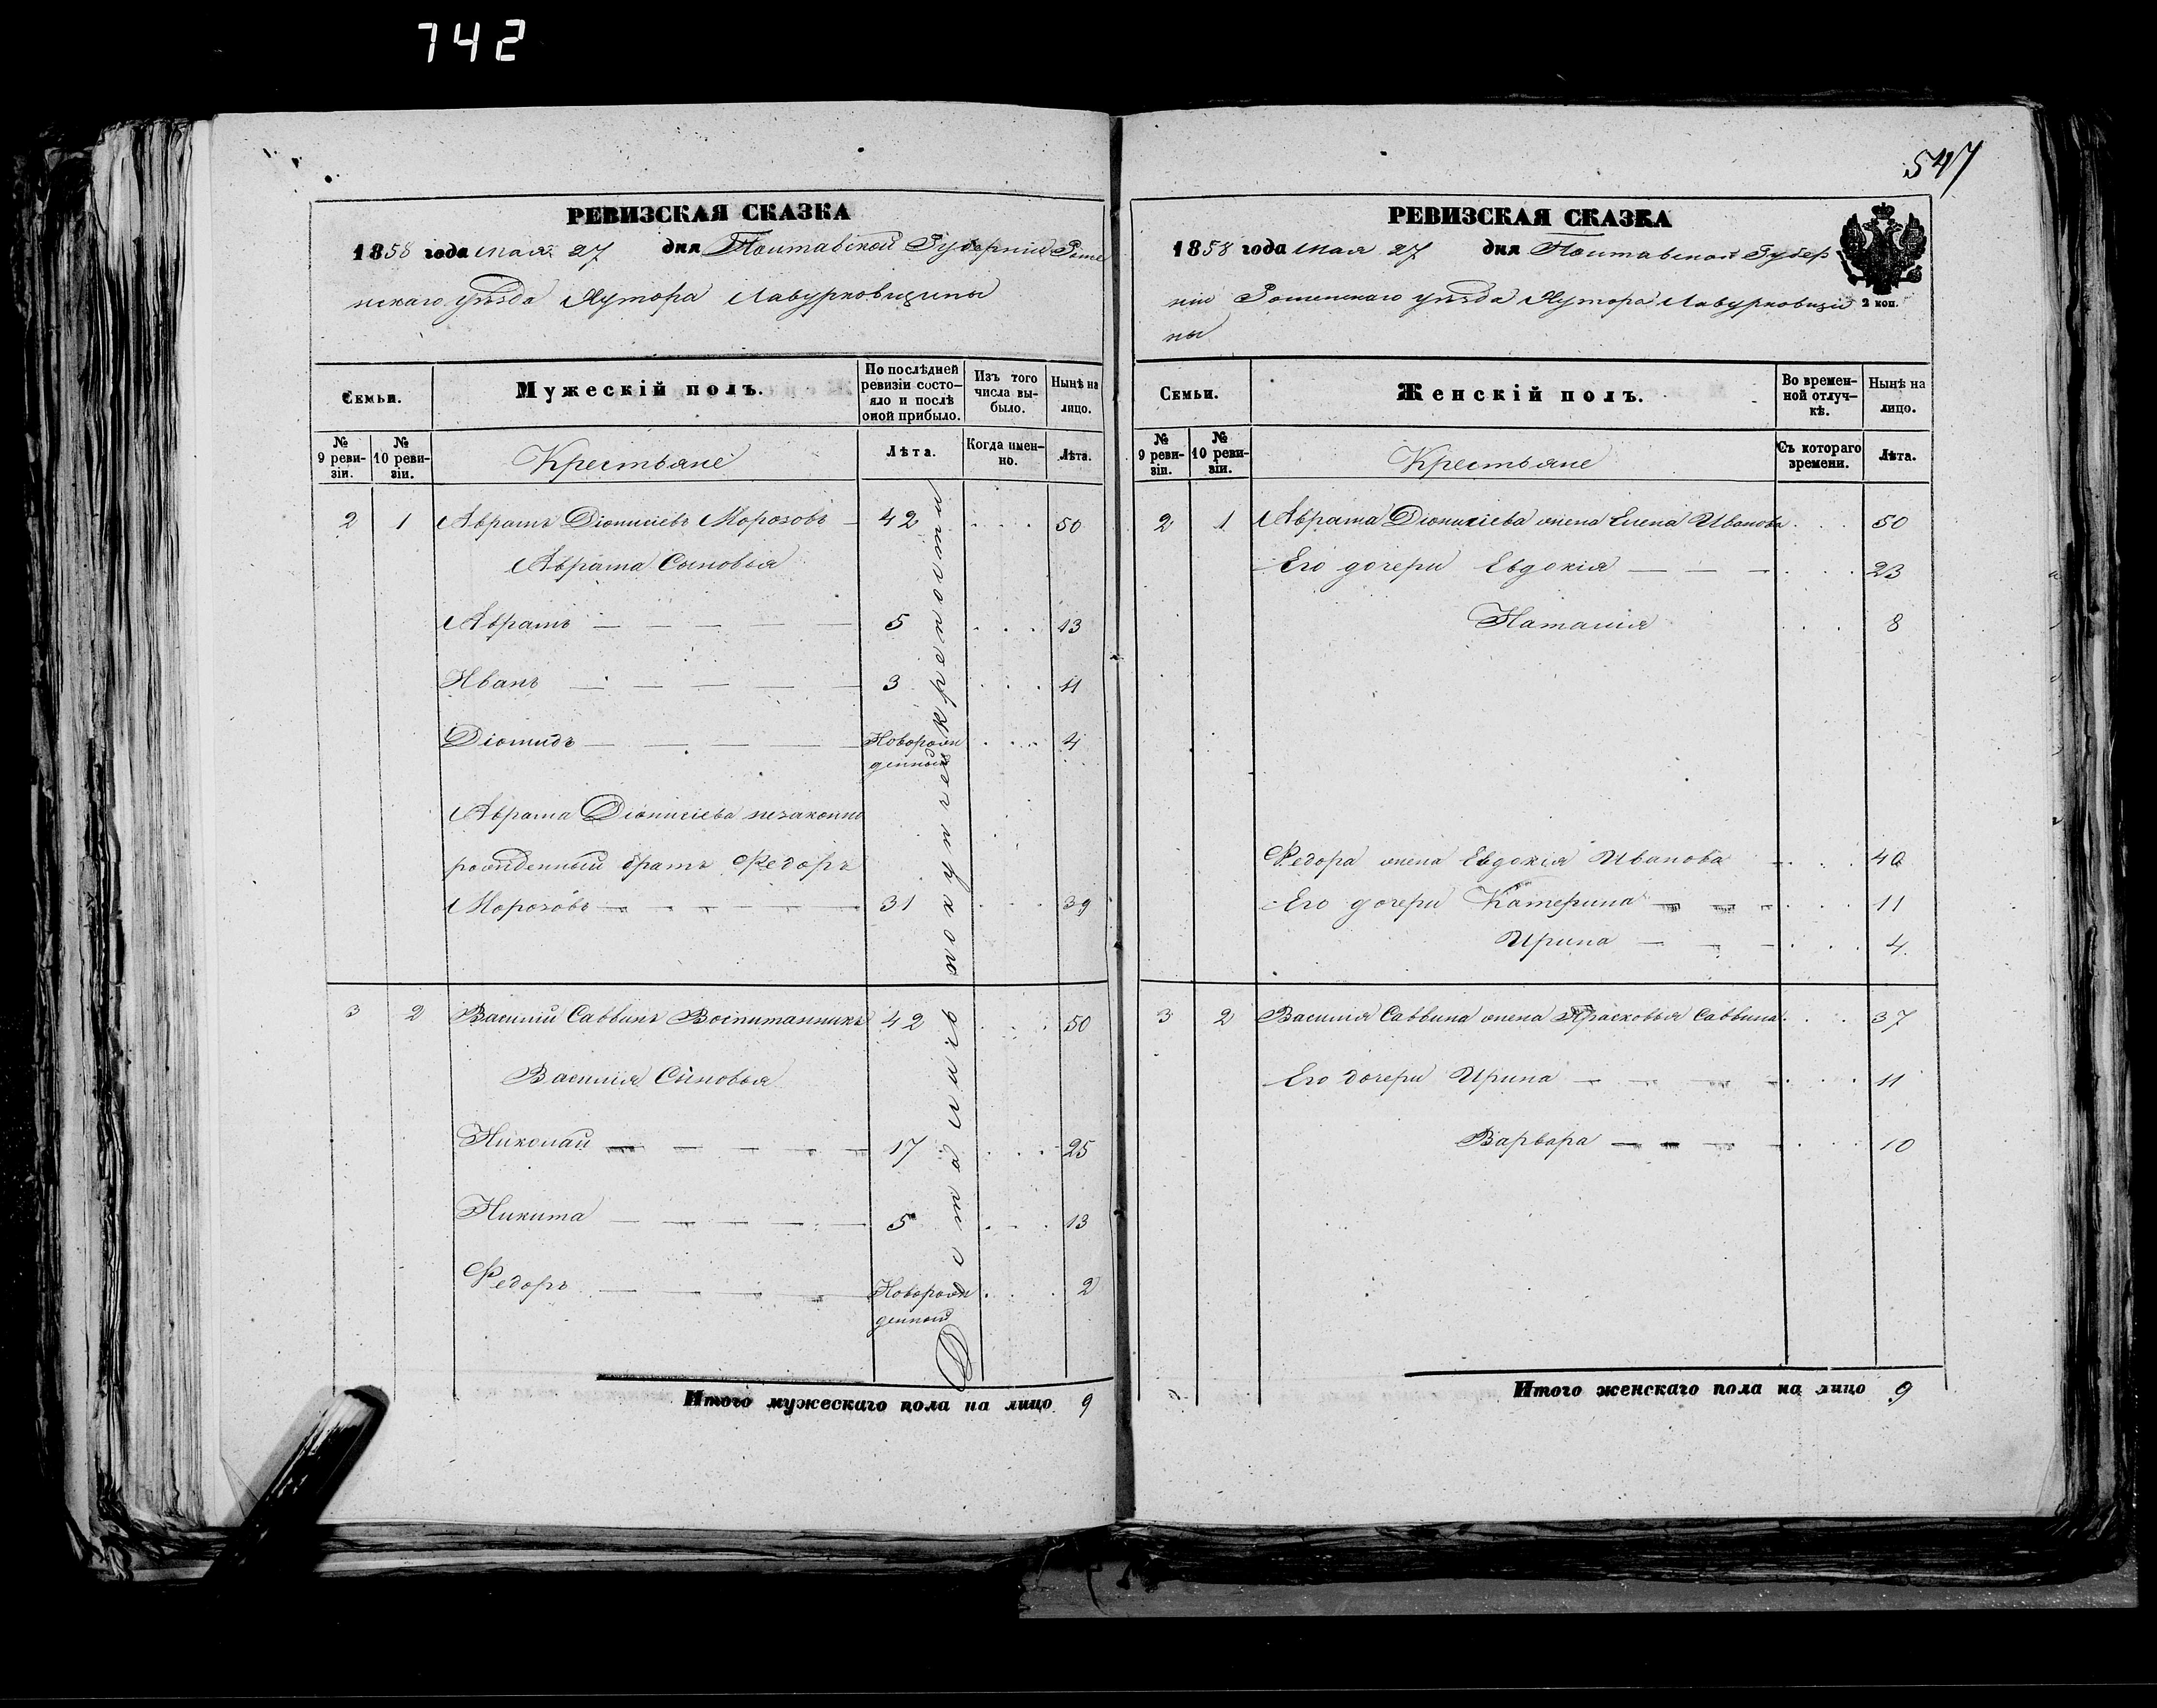 742
547
РЕВИЗСКАЯ СКАЗКА
1858 года мая 27 дня Полтавской Губерніи Роме
нскаго уѣзда Хутора Лавурковщины
Семьи.
Мужескій полъ.
По послѣдней ревизіи состо-
яло и послѣ оной прибыло.
Изъ того числа вы-
было.
Нынѣ на лицо.
№ 9 реви-
зіи.
№ 10 реви-
зіи.
Крестьяне
Лѣта.
Когда имен-
но.
Лѣта.
2 1 Аврамъ Діонисіевъ Морозовъ 42 50
Аврама Сыновья
Аврамъ 5 13
Иванъ 3 11
Діомидъ Новорож
денный 4
Аврама Діонисіева незаконно
рожденный братъ Федоръ
Морозовъ 31 39
3 2 Василій Саввинъ Воспитанникъ 42 50
Василія Сыновья
Николай 17 25
Никита 5 13
Федоръ Новорож
денный 2
Достались по купчей крепости
Итого мужескаго пола на лицо 9
РЕВИЗСКАЯ СКАЗКА
1858 года мая 27 дня Полтавской Губер
ніи Роменскаго уѣзда Хутора Лавурковщи
ны
2 коп.
Семьи.
Женскій полъ.
Во времен-
ной отлуч-
кѣ.
Нынѣ на лицо.
№ 9 реви-
зіи.
№ 10 реви-
зіи.
Крестьяне
Съ котораго времени.
Лѣта.
2 1 Аврама Діонисіева жена Елена Иванова 50
Его дочери Евдокія 23
Наталія 8
Федора жена Евдокія Иванова 40
Его дочери Катерина 11
Ирина 4
3 2 Василія Саввина жена Прасковья Саввина 37
Его дочери Ирина 11
Варвара 10
Итого женскаго пола на лицо 9